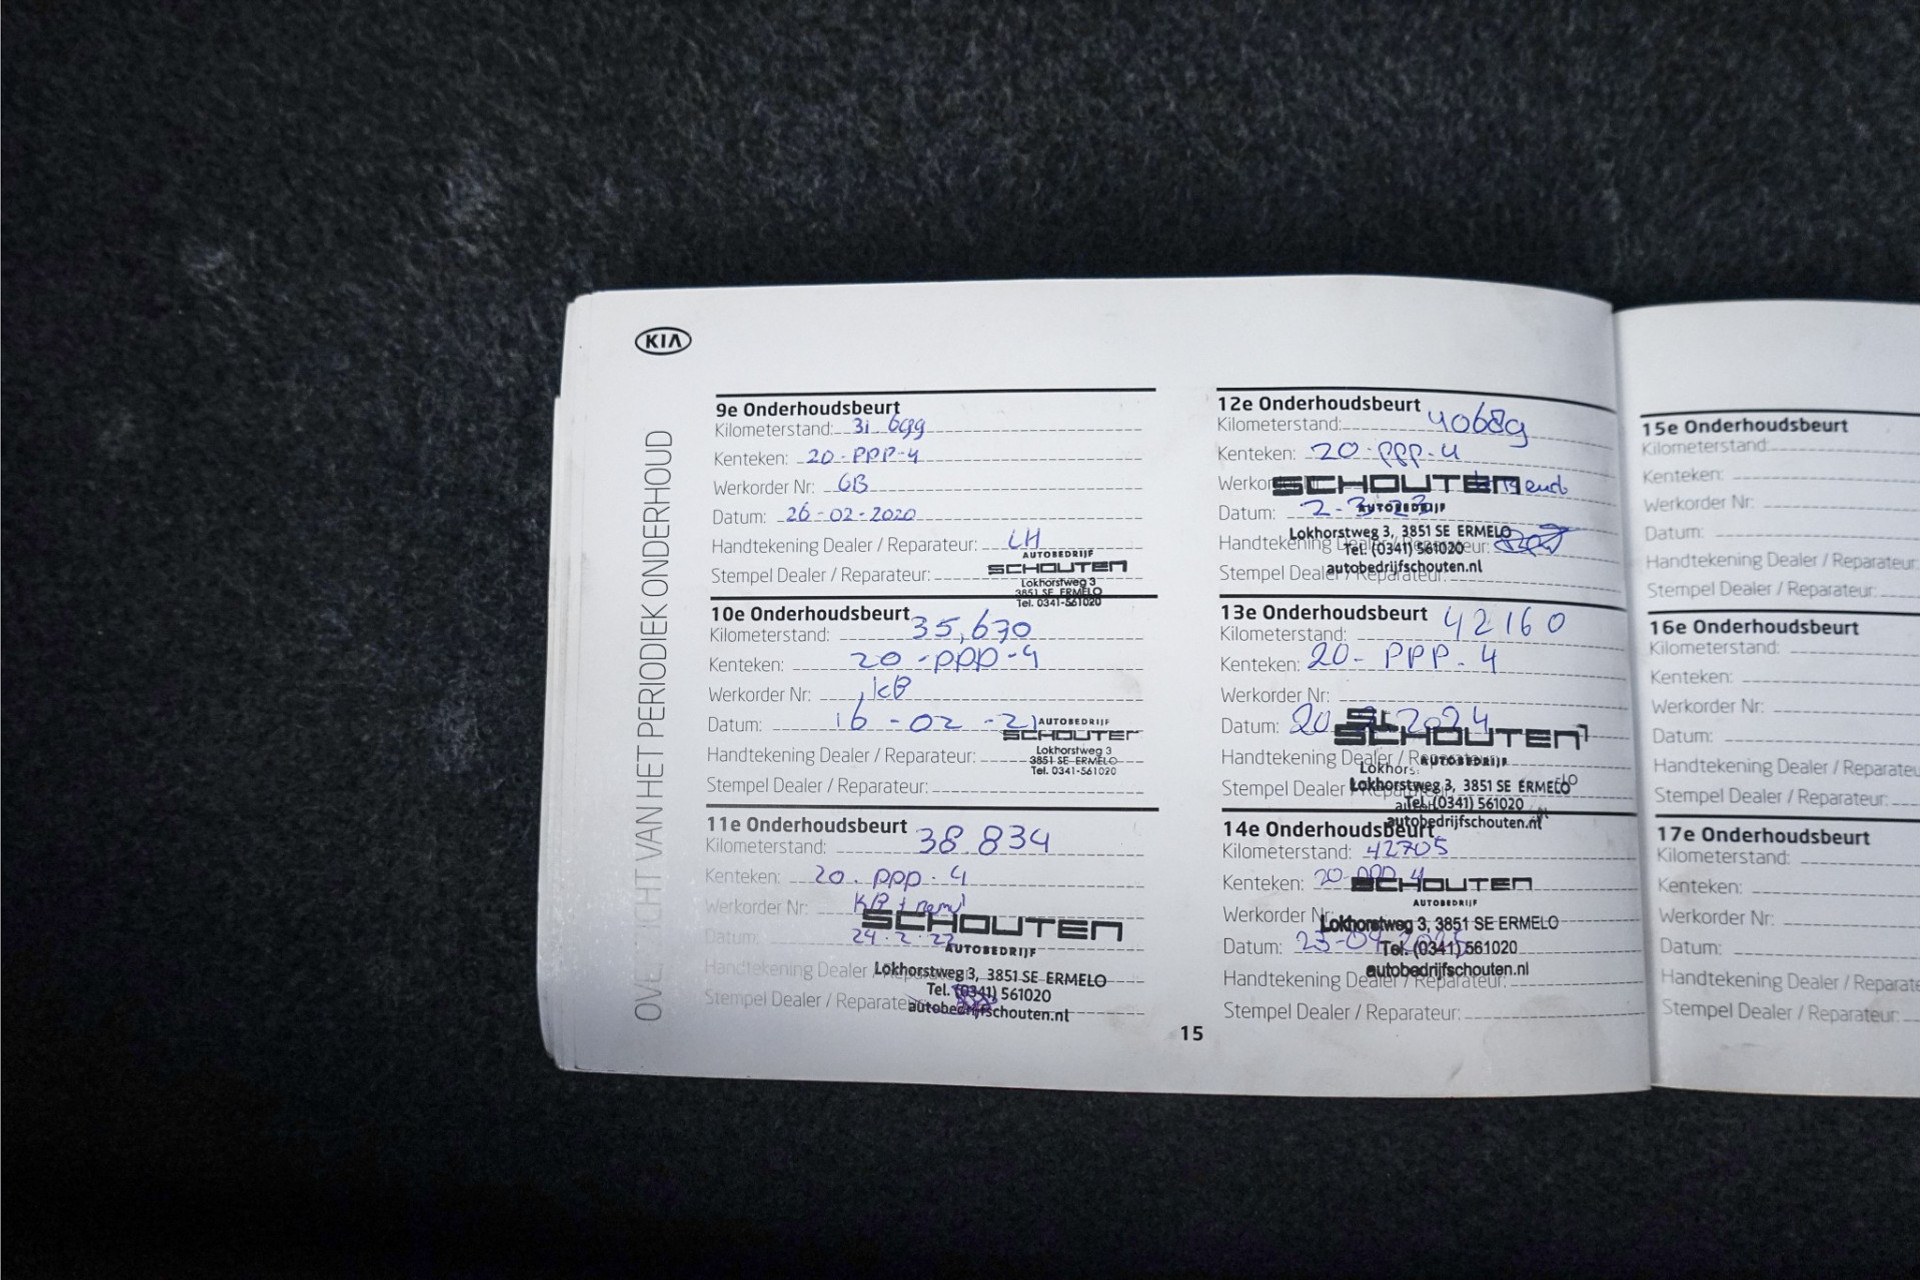 KIA
OVERZICHT VAN HET PERIODIEK ONDERHOUD
9e Onderhoudsbeurt
Kilometerstand: 31 699
Kenteken: 20-PPP-4
Werkorder Nr: GB
Datum: 26-02-2020
Handtekening Dealer / Reparateur: LH
Stempel Dealer / Reparateur:
AUTOBEDRIJF
SCHOUTEN
Lokhorstweg 3
3851 SE ERMELO
Tel. 0341-561020
10e Onderhoudsbeurt
Kilometerstand: 35,670
Kenteken: 20-PPP-4
Werkorder Nr: KB
Datum: 16-02-21
Handtekening Dealer / Reparateur:
Stempel Dealer / Reparateur:
AUTOBEDRIJF
SCHOUTEN
Lokhorstweg 3
3851 SE ERMELO
Tel. 0341-561020
11e Onderhoudsbeurt
Kilometerstand: 38.834
Kenteken: 20.PPP.4
Werkorder Nr: KB +
Datum: 24.2.22
Handtekening Dealer / Reparateur:
Stempel Dealer / Reparateur:
SCHOUTEN
AUTOBEDRIJF
Lokhorstweg 3, 3851 SE ERMELO
Tel. (0341) 561020
autobedrijfschouten.nl
12e Onderhoudsbeurt
Kilometerstand: 40689
Kenteken: 20-PPP-4
Werkorder Nr:
Datum: 2-3-23
Handtekening Dealer / Reparateur:
Stempel Dealer / Reparateur:
SCHOUTEN
AUTOBEDRIJF
Lokhorstweg 3, 3851 SE ERMELO
Tel. (0341) 561020
autobedrijfschouten.nl
13e Onderhoudsbeurt
Kilometerstand: 42160
Kenteken: 20-PPP-4
Werkorder Nr:
Datum: 20 2024
Handtekening Dealer / Reparateur:
Stempel Dealer / Reparateur:
SCHOUTEN
AUTOBEDRIJF
Lokhorstweg 3, 3851 SE ERMELO
Tel. (0341) 561020
autobedrijfschouten.nl
14e Onderhoudsbeurt
Kilometerstand: 42705
Kenteken: 20-PPP-4
Werkorder Nr:
Datum: 23-04-2025
Handtekening Dealer / Reparateur:
Stempel Dealer / Reparateur:
SCHOUTEN
AUTOBEDRIJF
Lokhorstweg 3, 3851 SE ERMELO
Tel. (0341) 561020
autobedrijfschouten.nl
15
15e Onderhoudsbeurt
Kilometerstand:
Kenteken:
Werkorder Nr:
Datum:
Handtekening Dealer / Reparateur:
Stempel Dealer / Reparateur:
16e Onderhoudsbeurt
Kilometerstand:
Kenteken:
Werkorder Nr:
Datum:
Handtekening Dealer / Reparateu
Stempel Dealer / Reparateur:
17e Onderhoudsbeurt
Kilometerstand:
Kenteken:
Werkorder Nr:
Datum:
Handtekening Dealer / Reparate
Stempel Dealer / Reparateur: